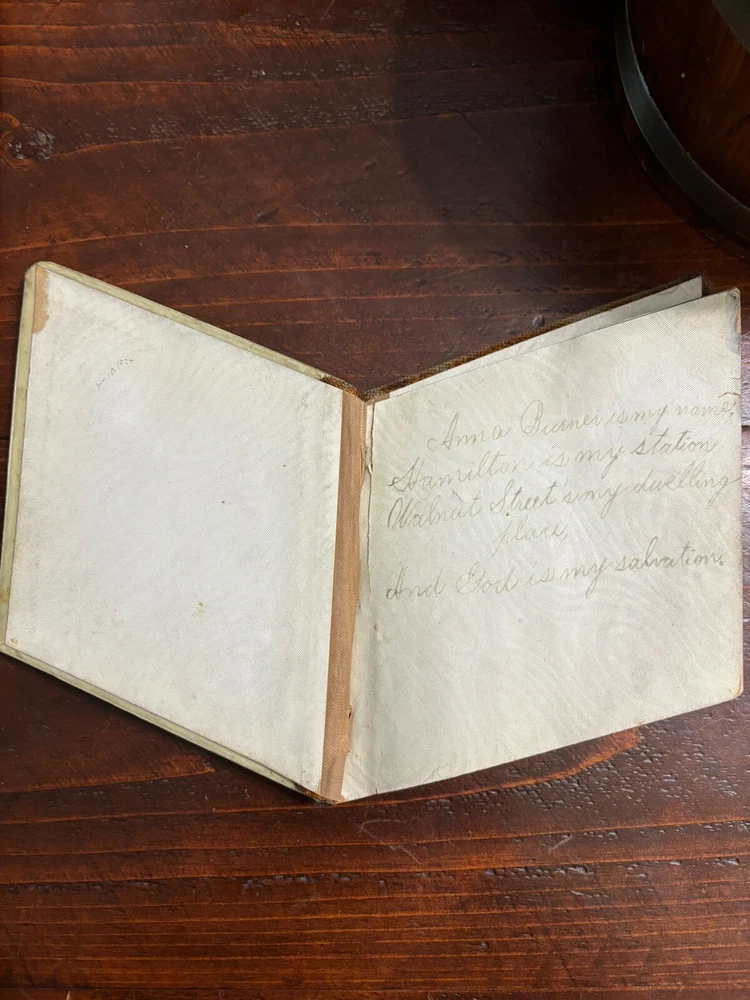 Anna Burner is my name,
Hamilton is my station
Walnut Street is my dwelling
place,
And God is my salvation.